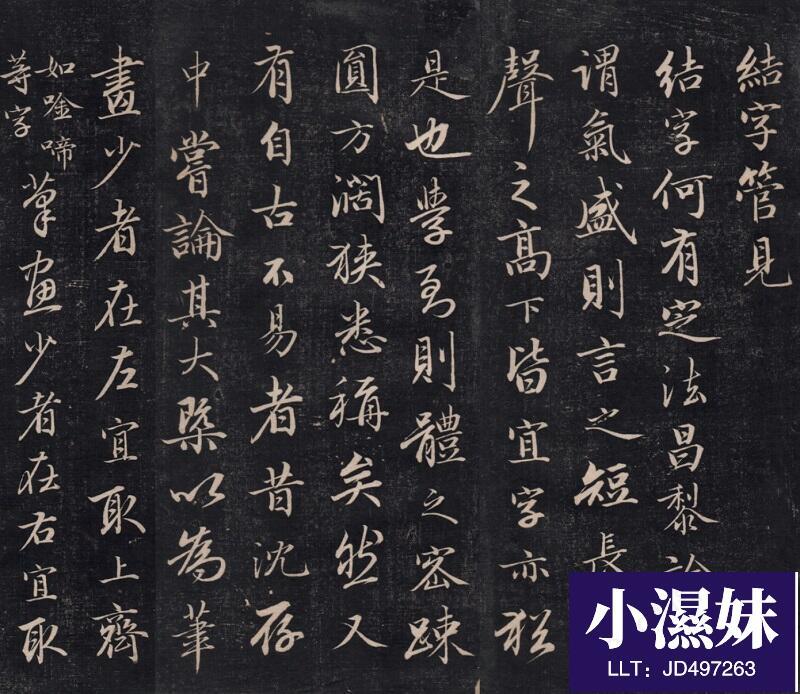 結字管見
結字何有定法昌黎論
謂氣盛則言之短長
聲之高下皆宜字亦猶
是也學到則體之密疎
圓方濶狹悉稱矣然又
有自古不易者昔沈存
中嘗論其大槩以為筆
畫少者在左宜取上齊
如唫啼
等字
筆畫少者在右宜取
小濕妹
LLT：JD497263